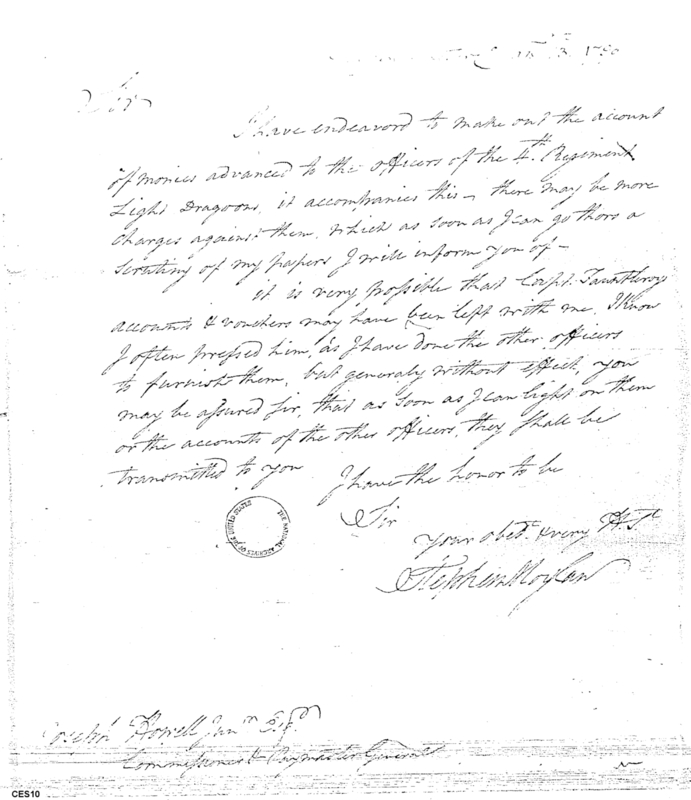 1790
Sir
I have endeavord to make out the account
of monies advanced to the officers of the 4th Regiment
Light Dragoons, it accompanies this – there may be more
charges against them, which as soon as I can go thoro a
scrutiny of my papers I will inform you of –
it is very possible that Capt. Fauntleroys
accounts & vouchers may have been left with me, I know
I often pressed him, as I have done the other officers
to furnish them, but generaly without effect, you
may be assured Sir, that as soon as I can light on them
or the accounts of the other officers, they shall be
transmitted to you
I have the honor to be
Sir
your obet. & very H. St
Stephen Moylan
THE NATIONAL ARCHIVES OF THE UNITED STATES
Joseph Howell Junr Esqr
Commissioner & Paymaster General
CES10